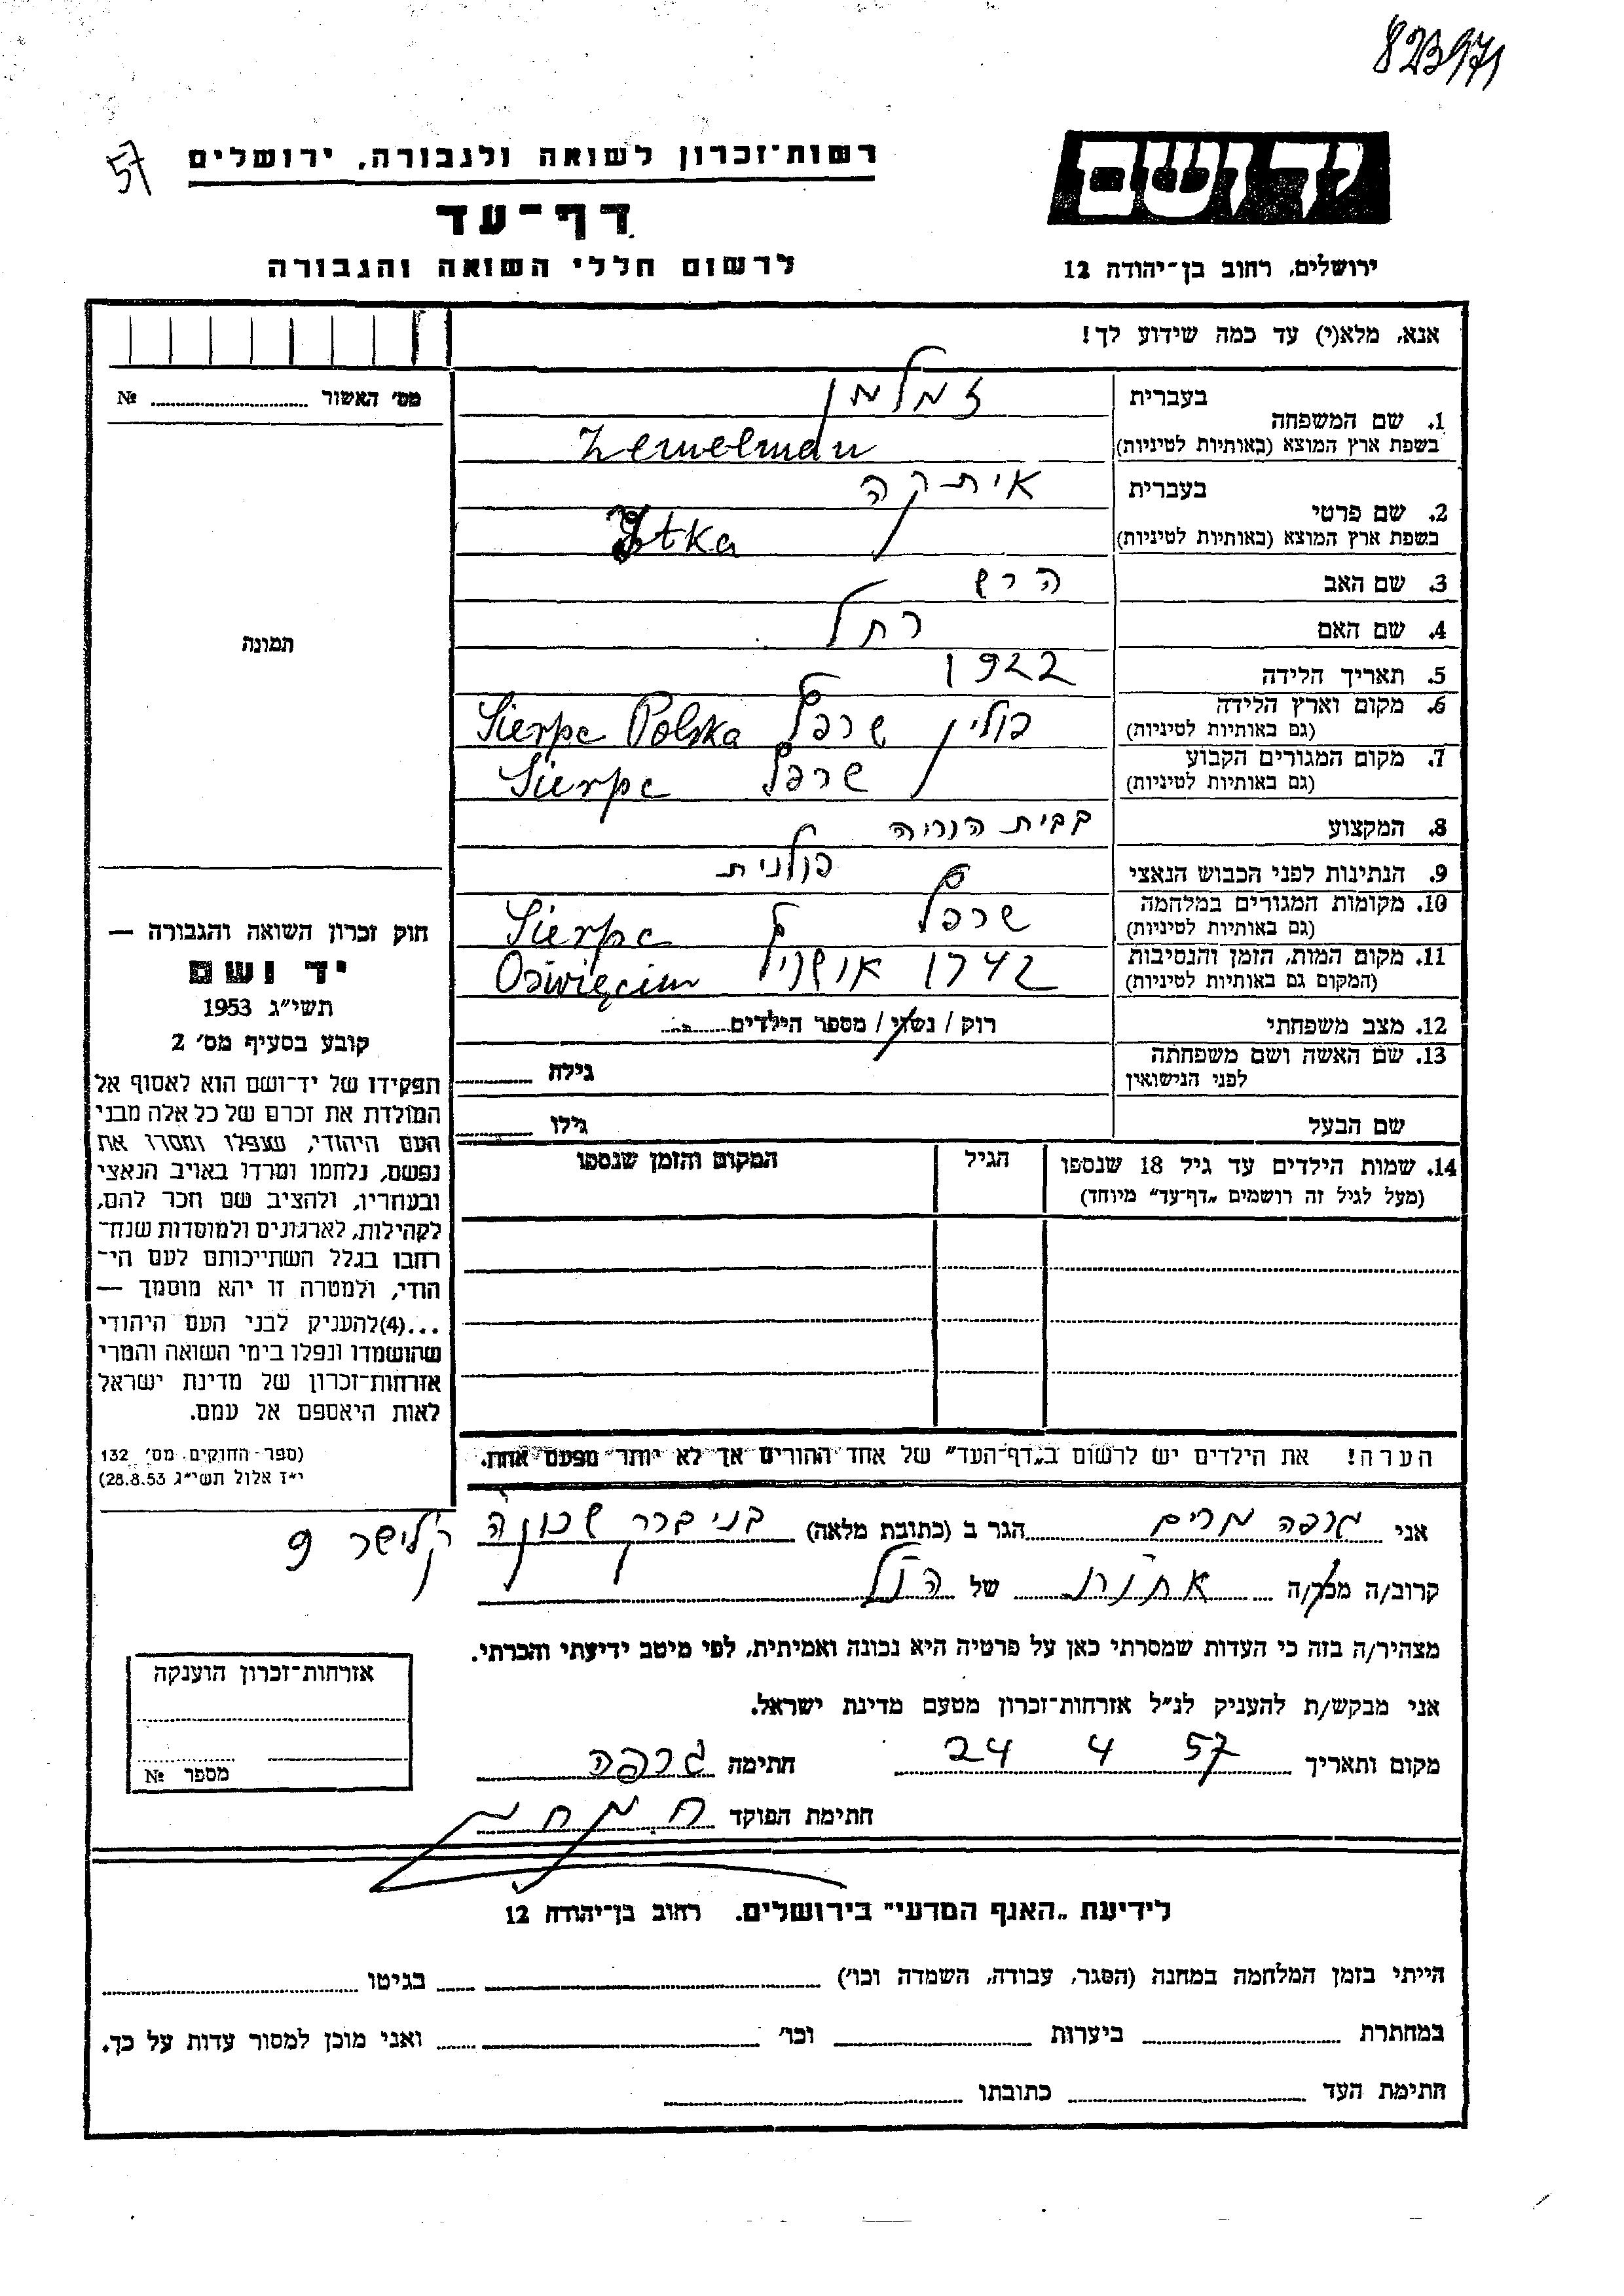 823971
57
רשות־זכרון לשואה ולגבורה, ירושלים
דף־עד
לרשום חללי השואה והגבורה
יד ושם
ירושלים, רחוב בן־יהודה 12
אנא, מלא(י) עד כמה שידוע לך!
מס׳ האשור № 
1. שם המשפחה בעברית זמלמן
בשפת ארץ המוצא (באותיות לטיניות) Zemelman
2. שם פרטי בעברית איתקה
בשפת ארץ המוצא (באותיות לטיניות) Itka
3. שם האב הרש
4. שם האם רחל
תמונה
5. תאריך הלידה 1922
6. מקום וארץ הלידה (גם באותיות לטיניות) פולין שרפץ Sierpc Polska
7. מקום המגורים הקבוע (גם באותיות לטיניות) שרפץ Sierpc
8. המקצוע בבית הוריה
9. הנתינות לפני הכבוש הנאצי פולנית
10. מקומות המגורים במלחמה (גם באותיות לטיניות) שרפץ Sierpc
11. מקום המות, הזמן והנסיבות (המקום גם באותיות לטיניות) 1942 Oświęcim
12. מצב משפחתי רוק / נשוי / מספר הילדים
13. שם האשה ושם משפחתה לפני הנישואין גילה
שם הבעל גילו
14. שמות הילדים עד גיל 18 שנספו הגיל המקום והזמן שנספו
(מעל לגיל זה רושמים „דף־עד” מיוחד)
הערה! את הילדים יש לרשום ב„דף־העד” של אחד ההורים אך לא יותר מפעם אחת.
חוק זכרון השואה והגבורה —
יד ושם
תשי״ג 1953
קובע בסעיף מס׳ 2
תפקידו של יד־ושם הוא לאסוף אל
המולדת את זכרם של כל אלה מבני
העם היהודי, שנפלו ומסרו את
נפשם, נלחמו ומרדו באויב הנאצי
ובעוזריו, ולהציב שם וזכר להם,
לקהילות, לארגונים ולמוסדות שנח־
רבו בגלל השתייכותם לעם הי־
הודי, ולמטרה זו יהא מוסמך —
...(4)להעניק לבני העם היהודי
שהושמדו ונפלו בימי השואה והמרי
אזרחות־זכרון של מדינת ישראל
לאות היאספם אל עמם.
(ספר החוקים מס׳ 132
י״ז אלול תשי״ג 28.8.53)
אני גרפה מרים הגר ב (כתובת מלאה) בני ברק שכונה 9
קרוב/ה מכר/ה אחות של הנ״ל
מצהיר/ה בזה כי העדות שמסרתי כאן על פרטיה היא נכונה ואמיתית, לפי מיטב ידיעתי והכרתי.
אני מבקש/ת להעניק לנ״ל אזרחות־זכרון מטעם מדינת ישראל.
מקום ותאריך 24 4 57 חתימה גרפה
חתימת הפוקד
אזרחות־זכרון הוענקה
מספר №
לידיעת „האגף המדעי” בירושלים. רחוב בן־יהודה 12
הייתי בזמן המלחמה במחנה (הסגר, עבודה, השמדה וכו׳) בגיטו
במחתרת ביערות וכו׳ ואני מוכן למסור עדות על כך.
חתימת העד כתובתו